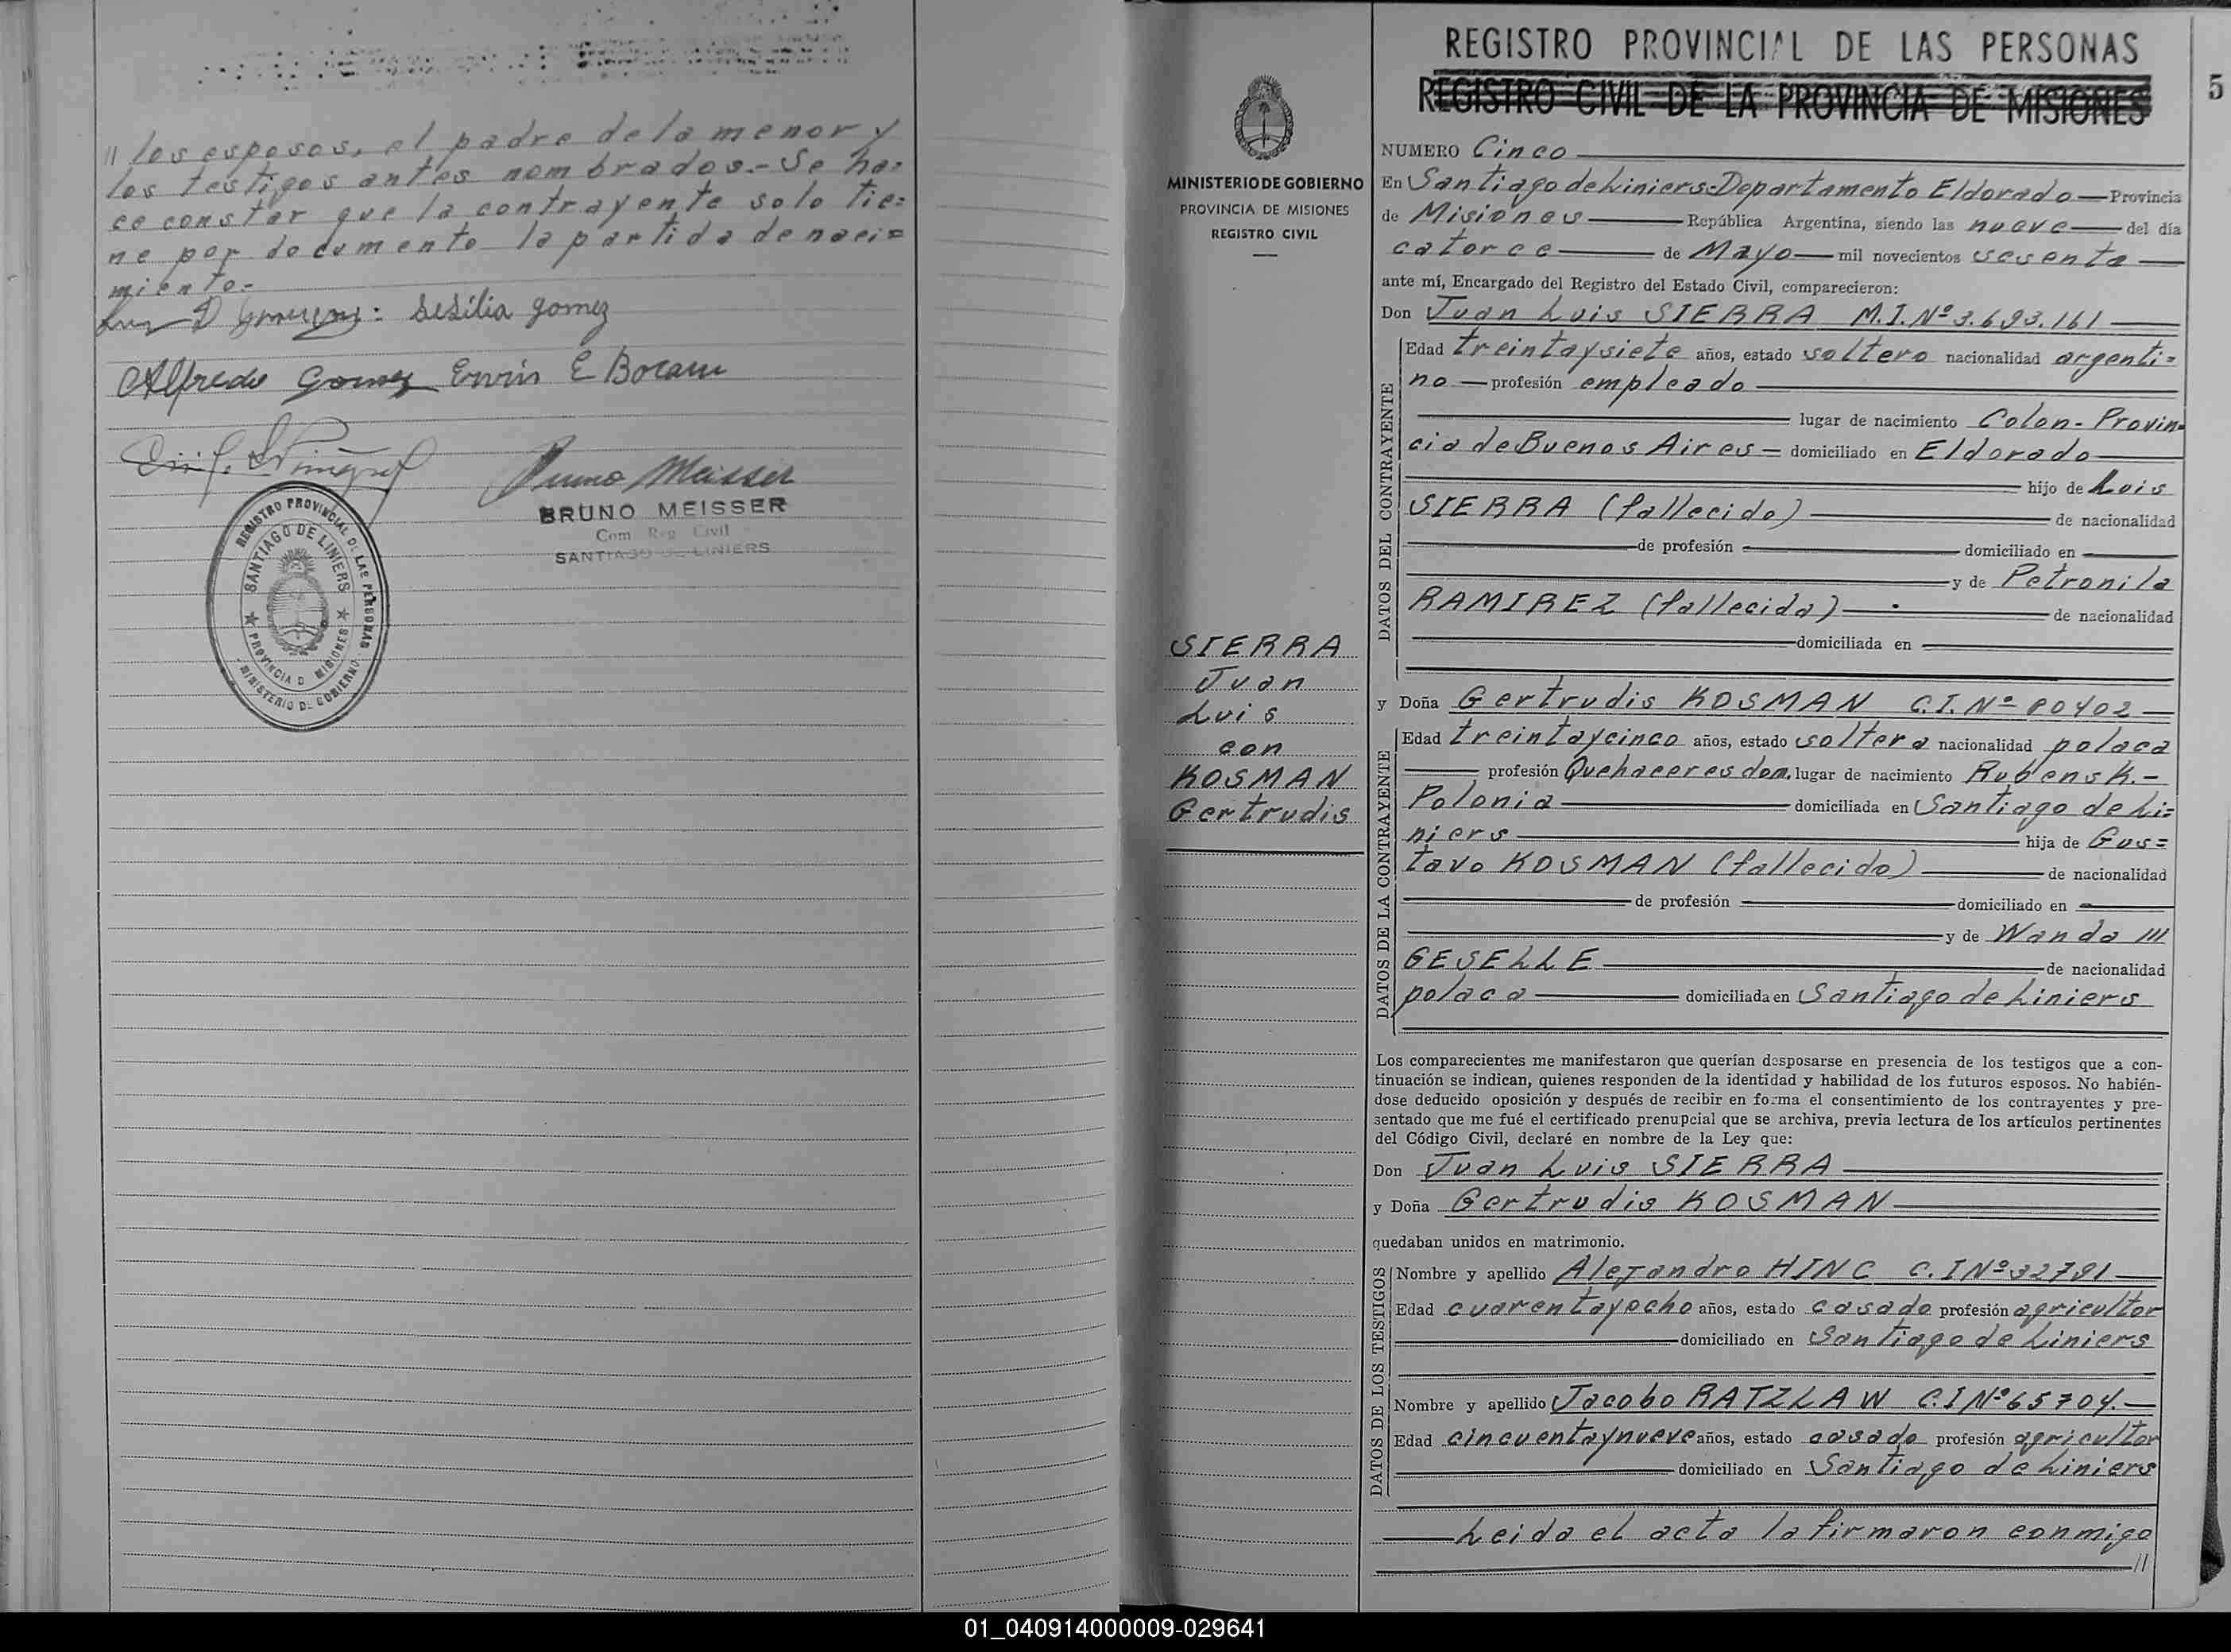 // los esposos, el padre de la menor y
los testigos antes nombrados.- Se ha=
ce constar que la contrayente solo tie=
ne por documento la partida de naci=
miento.-
Sesilia gomez
Alfredo Gomez Ervin E
Bruno Meisser
BRUNO MEISSER
Com Reg Civil
SANTIAGO DE LINIERS
REGISTRO PROVINCIAL DE LAS PERSONAS
SANTIAGO DE LINIERS
PROVINCIA D MISIONES
MINISTERIO DE GOBIERNO
5
REGISTRO PROVINCIAL DE LAS PERSONAS
REGISTRO CIVIL DE LA PROVINCIA DE MISIONES
MINISTERIO DE GOBIERNO
PROVINCIA DE MISIONES
REGISTRO CIVIL
SIERRA
Juan
Luis
con
KOSMAN
Gertrudis
NUMERO Cinco
En Santiago de Liniers-Departamento Eldorado Provincia
de Misiones República Argentina, siendo las nueve del día
catorce de Mayo mil novecientos sesenta
ante mí, Encargado del Registro del Estado Civil, comparecieron:
Don Juan Luis SIERRA M.I.Nº 3.693.161
DATOS DEL CONTRAYENTE
Edad treintaysiete años, estado soltero nacionalidad argenti=
no profesión empleado
lugar de nacimiento Colon-Provin=
cia de Buenos Aires domiciliado en Eldorado
hijo de Luis
SIERRA (fallecido) de nacionalidad
de profesión domiciliado en
y de Petronila
RAMIREZ (fallecida) de nacionalidad
domiciliada en
y Doña Gertrudis KOSMAN C.I.Nº 80402
DATOS DE LA CONTRAYENTE
Edad treintaycinco años, estado soltera nacionalidad polaca
profesión Quehaceres dom. lugar de nacimiento RubensK.-
Polonia domiciliada en Santiago de Li=
niers hija de Gus=
tavo KOSMAN (fallecido) de nacionalidad
de profesión domiciliado en
y de Wanda ///
GESELLE de nacionalidad
polaca domiciliada en Santiago de Liniers
Los comparecientes me manifestaron que querían desposarse en presencia de los testigos que a con-
tinuación se indican, quienes responden de la identidad y habilidad de los futuros esposos. No habién-
dose deducido oposición y después de recibir en forma el consentimiento de los contrayentes y pre-
sentado que me fué el certificado prenupcial que se archiva, previa lectura de los artículos pertinentes
del Código Civil, declaré en nombre de la Ley que:
Don Juan Luis SIERRA
y Doña Gertrudis KOSMAN
quedaban unidos en matrimonio.
DATOS DE LOS TESTIGOS
Nombre y apellido Alejandro HINC C.I Nº 32791
Edad cuarentayocho años, estado casado profesión agricultor
domiciliado en Santiago de Liniers
Nombre y apellido Jacobo RATZLAW C.I Nº 65704.
Edad cincuentaynueve años, estado casado profesión agricultor
domiciliado en Santiago de Liniers
Leida el acta la firmaron conmigo
//
01_040914000009-029641